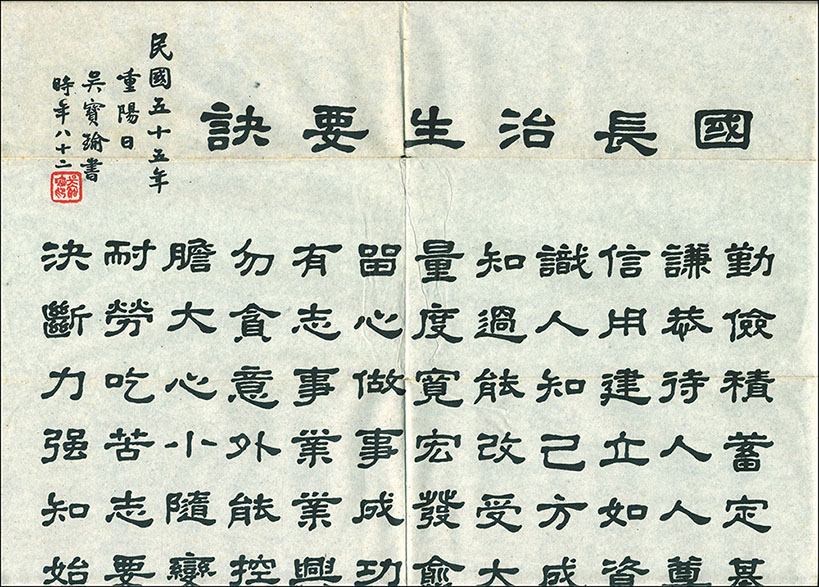 國長治生要訣
勤儉積蓄定基
謙恭待人人尊
信用建立如資
識人知己方成
知過能改受大
量度寬宏發愈
留心做事成功
有志事業業興
勿貪意外能控
膽大心小隨變
耐勞吃苦志要
決斷力强知始
民國五十五年
重陽日
吳寶瑜書
時年八十二